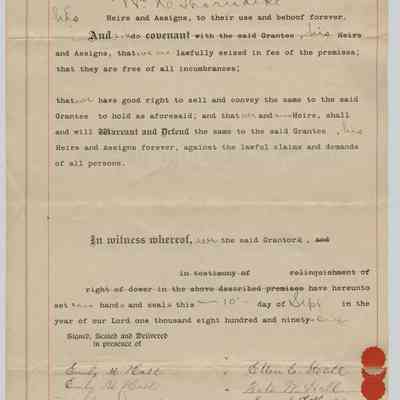 his Heirs and Assigns, to their use and behoof forever.
And we do covenant with the said Grantee, his Heirs
and Assigns, that we are lawfully seized in fee of the premises;
that they are free of all incumbrances;
that we have good right to sell and convey the same to the said
Grantee to hold as aforesaid; and that we and our Heirs, shall
and will Warrant and Defend the same to the said Grantee, his
Heirs and Assigns forever, against the lawful claims and demands
of all persons.
In witness whereof, we the said Grantors, and
in testimony of relinquishment of
right of dower in the above described premises have hereunto
set our hands and seals this 10 day of Sept in the
year of our Lord one thousand eight hundred and ninety-
Signed, Sealed and Delivered
in presence of
Emily H. Hall
Emily H. Hall